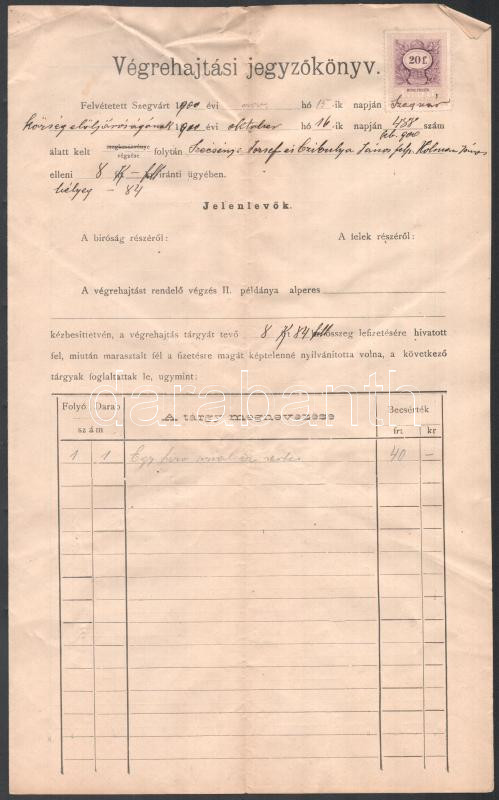 20 f.
Végrehajtási jegyzőkönyv.
Felvétetett Szegvárt 1900 évi nov hó 15-ik napján Szegvár
község elöljáróságának 1900 évi október hó 16-ik napján 488 szám
alatt kelt végzése folytán József és János felp. János
elleni 8 K iránti ügyében.
bélyeg - 84
Jelenlevők.
A biróság részéről: A felek részéről:
A végrehajtást rendelő végzés II. példánya alperes
kézbesittetvén, a végrehajtás tárgyát tevő 8 K 84 f összeg lefizetésére hivatott
fel, miután marasztalt fél a fizetésre magát képtelenné nyilvánitotta volna, a következő
tárgyak foglaltattak le, ugymint:
darabanth
Folyó Darab A tárgy megnevezése Becsérték
szám frt kr
1 1 Egy 40 —